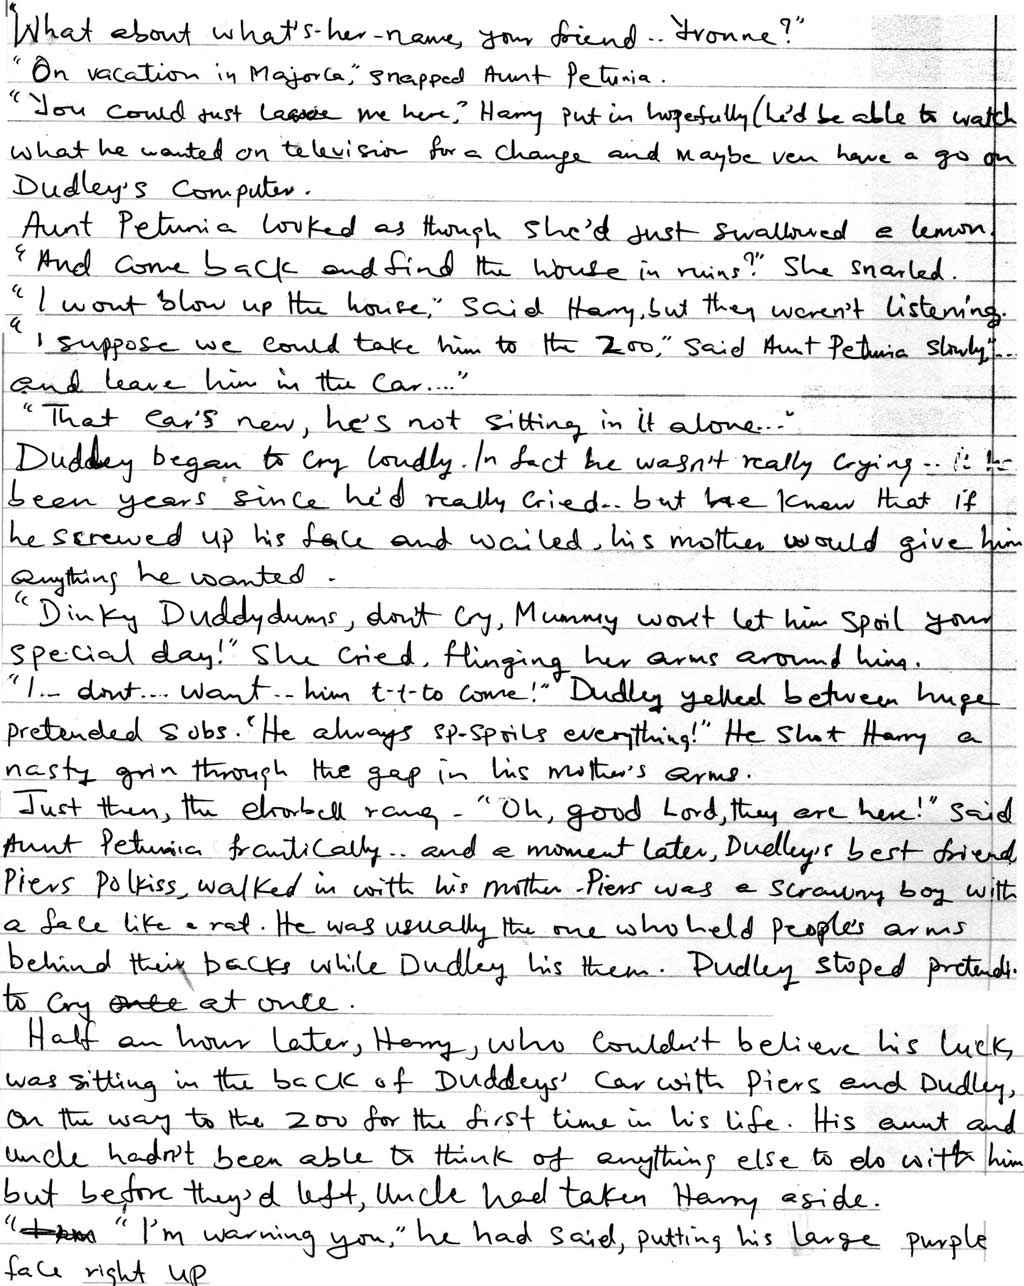 "What about what's-her-name, your friend.. Yvonne?"
"On vacation in Majorca," snapped Aunt Petunia.
"You could just leave me here," Harry put in hopefully (he'd be able to watch
what he wanted on television for a change and maybe ven have a go on
Dudley's computer.
Aunt Petunia looked as though she'd just swallowed a lemon.
"And come back and find the house in ruins?" She snarled.
"I wont blow up the house," said Harry, but they weren't listening.
"I suppose we could take him to the zoo," said Aunt Petunia slowly,"...
and leave him in the car...."
"That car's new, he's not sitting in it alone..."
Duddley began to cry loudly. In fact he wasn't really crying..
been years since he'd really cried.. but he knew that if
he screwed up his face and wailed, his mother would give him
anything he wanted.
"Dinky Duddydums, don't cry, Mummy won't let him spoil your
special day!" She cried, flinging her arms around him.
"I... dont.... want.. him t-t-to come!" Dudley yelled between huge
pretended sobs. "He always sp-spoils everything!" He shot Harry a
nasty grin through the gap in his mother's arms.
Just then, the doorbell rang - "Oh, good Lord, they are here!" said
Aunt Petunia frantically.. and a moment later, Dudley's best friend,
Piers Polkiss, walked in with his mother. Piers was a scrawny boy with
a face like a rat. He was usually the one who held people's arms
behind their backs while Dudley his them. Dudley stoped pretend.
to cry once at once.
Half an hour later, Harry, who couldn't believe his luck,
was sitting in the back of Duddeys' car with Piers and Dudley,
on the way to the zoo for the first time in his life. His aunt and
uncle hadn't been able to think of anything else to do with him
but before they'd left, Uncle had taken Harry aside.
" "I'm warning you," he had said, putting his large purple
face right up